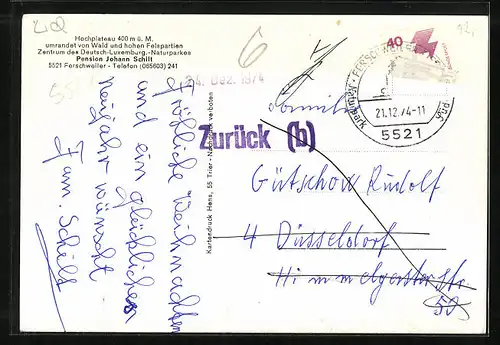 Hochplateau 400 m ü. M.
umrandet von Wald und hohen Felspartien
Zentrum des Deutsch-Luxemburg.-Naturparkes
Pension Johann Schilt
5521 Ferschweiler - Telefon (065603) 241
Fröhliche Weihnachten
und ein glückliches
neujahr wünscht
Fam. Schilt
Kartendruck Hens, 55 Trier - Nachdruck verboten
6
24. Dez. 1974
Zurück (b)
40
Naturpark
Süd
21.12.74-11
5521
Familie
Gütschow Rudolf
4 Düsseldorf
Himmelgeister Str.
53